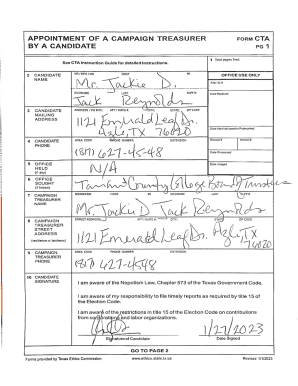 APPOINTMENT OF A CAMPAIGN TREASURER BY A CANDIDATE
FORM CTA
PG 1
See CTA Instruction Guide for detailed instructions.
1 Total pages filed:
2 CANDIDATE NAME
MS / MRS / MR FIRST MI
Mr. Jackie D.
NICKNAME LAST SUFFIX
Jack Reynolds
OFFICE USE ONLY
Date Received
3 CANDIDATE MAILING ADDRESS
1121 Emerald Leaf Dr.
Azle, TX 76020
4 CANDIDATE PHONE
AREA CODE PHONE NUMBER EXTENSION
(817) 627-4548
Date Processed
5 OFFICE HELD (if any)
N/A
Date Imaged
6 OFFICE SOUGHT (if known)
Tarrant County College Board of Trustees
7 CAMPAIGN TREASURER NAME
Mr. Jackie D. Jack Reynolds
8 CAMPAIGN TREASURER STREET ADDRESS
(residence or business)
1121 Emerald Leaf Dr. Azle, TX 76020
9 CAMPAIGN TREASURER PHONE
AREA CODE PHONE NUMBER EXTENSION
(817) 627-4548
10 CANDIDATE SIGNATURE
I am aware of the Nepotism Law, Chapter 573 of the Texas Government Code.
I am aware of my responsibility to file timely reports as required by title 15 of the Election Code.
I am aware of the restrictions in title 15 of the Election Code on contributions from corporations and labor organizations.
1/27/2023
Signature of Candidate Date Signed
GO TO PAGE 2
Forms provided by Texas Ethics Commission www.ethics.state.tx.us Revised 1/1/2023